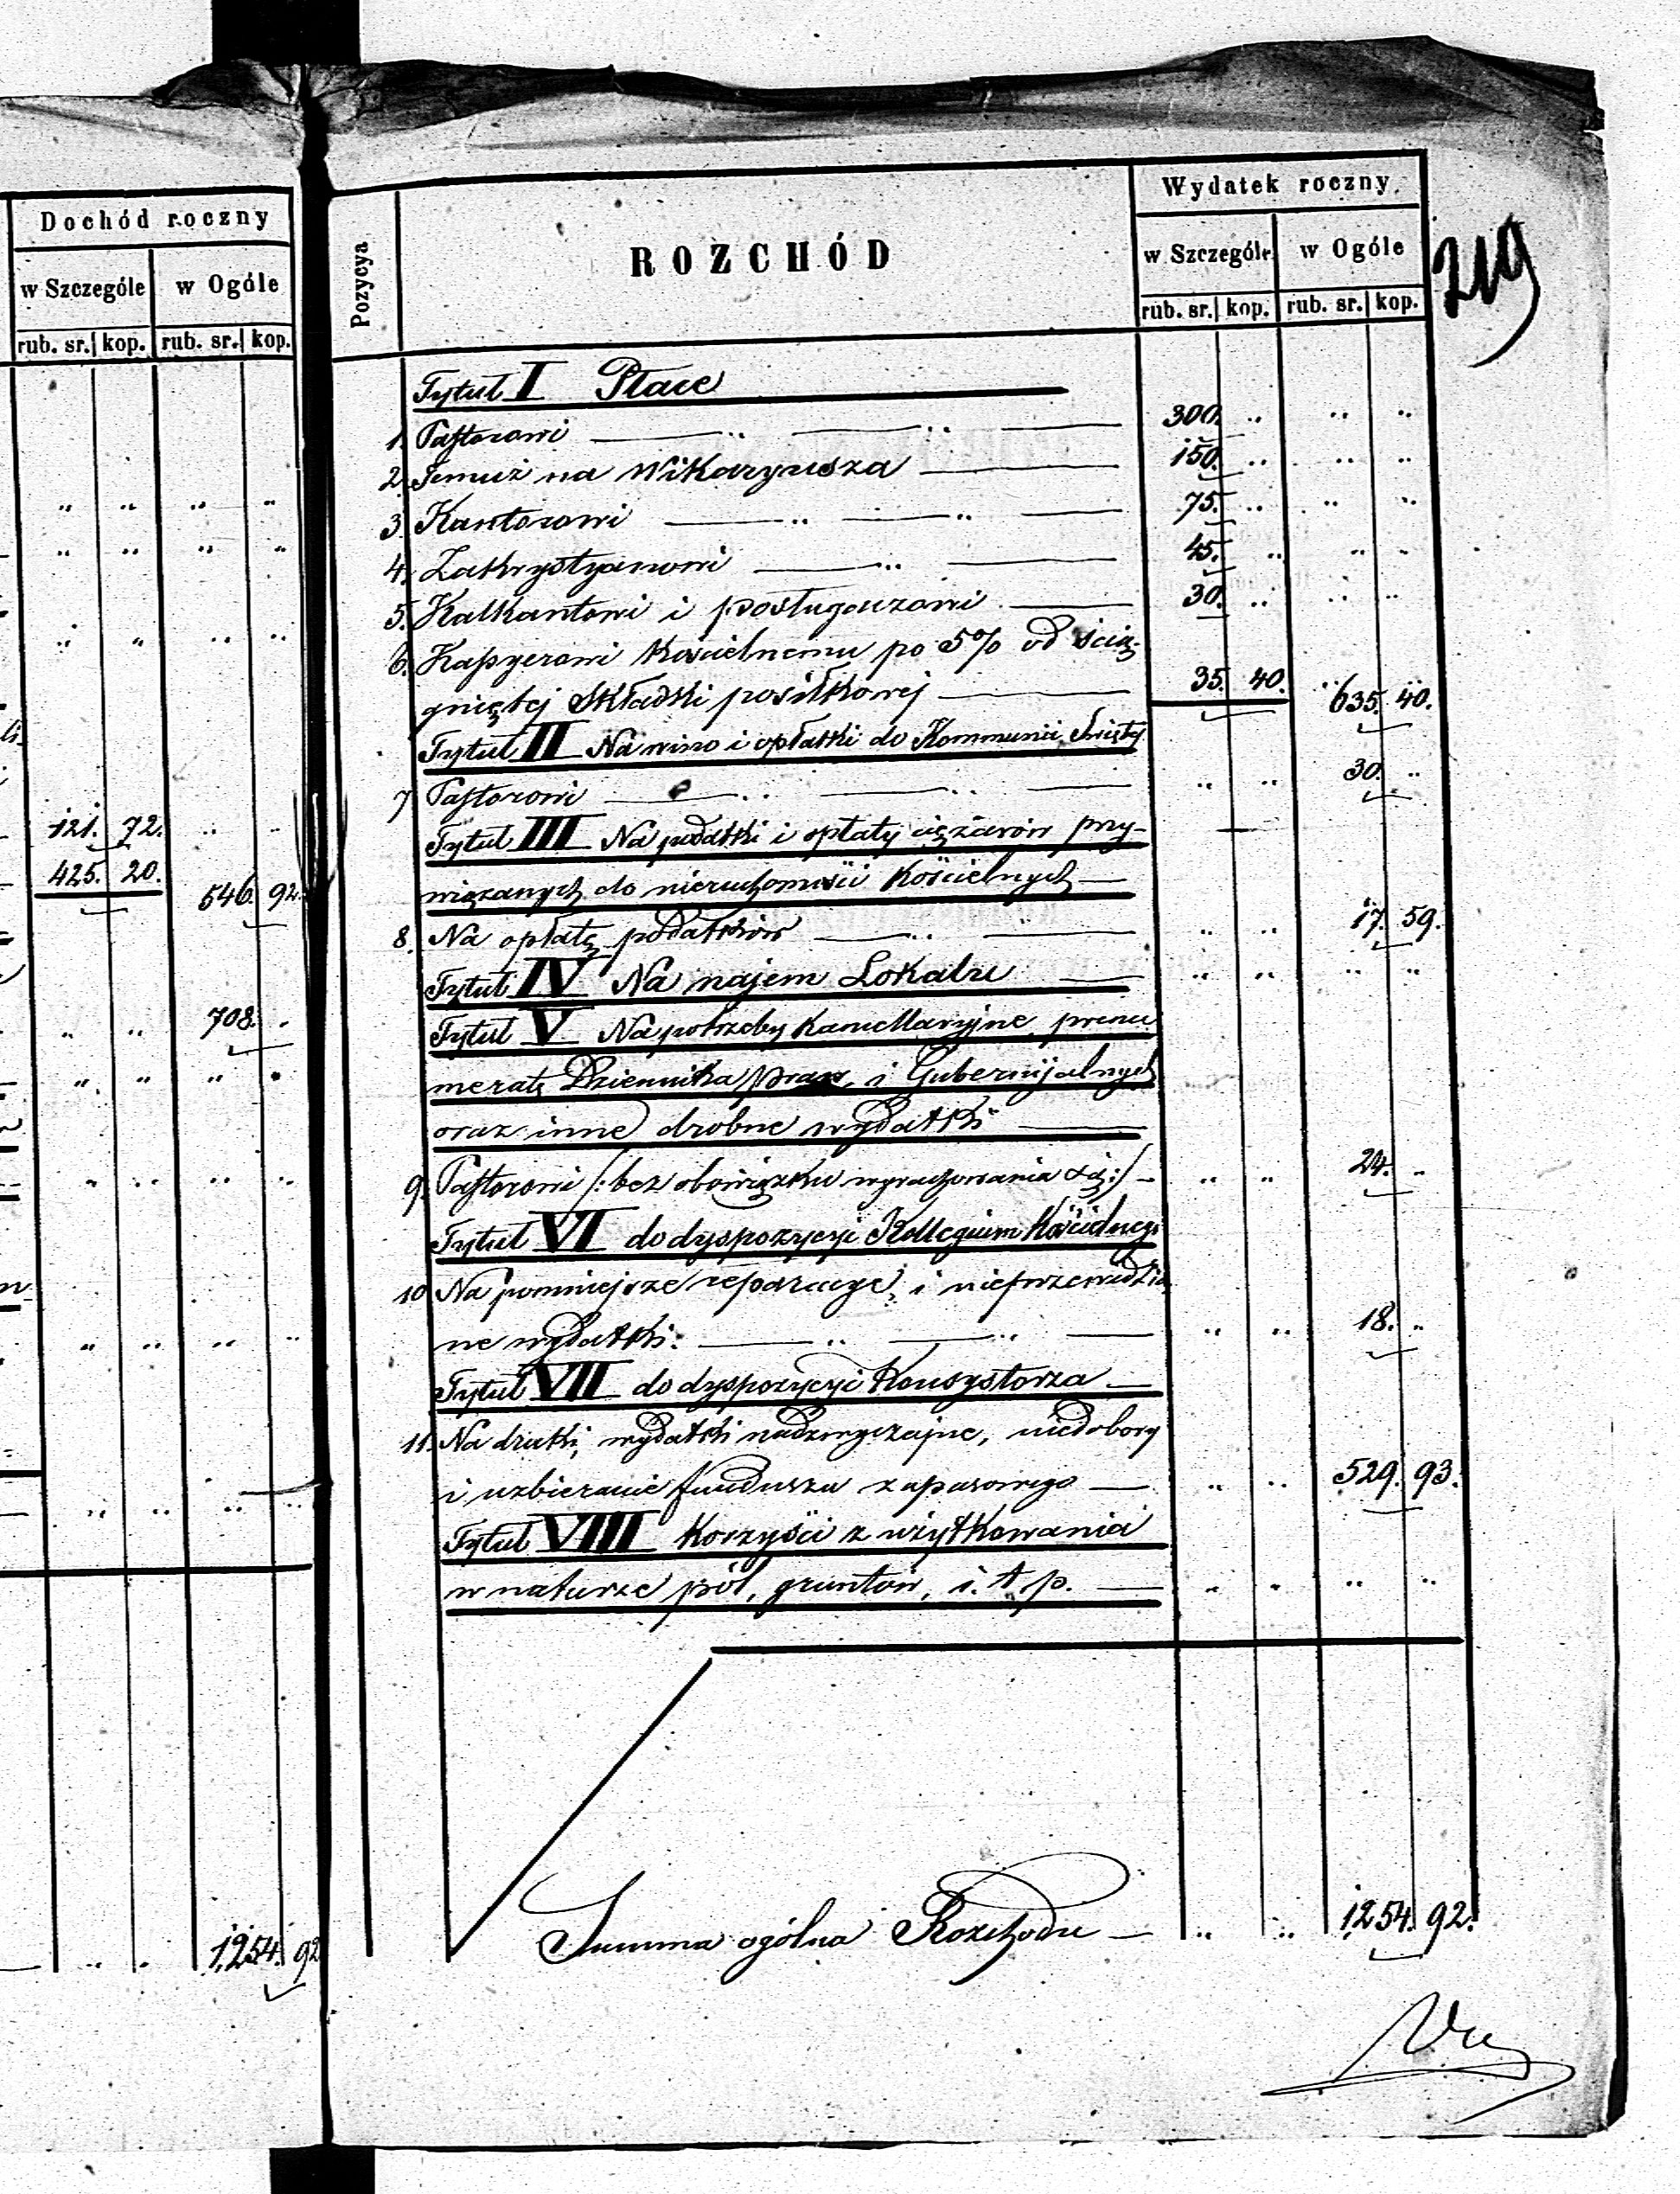 Dochód roczny
w Szczególe w Ogóle
rub. sr. kop. rub. sr. kop.
121. 72.
425. 20. 546. 92.
708.
1,254. 92
219
Pozycya ROZCHÓD Wydatek roczny
w Szczególe w Ogóle
rub. sr. kop. rub. sr. kop.
Tytuł I Płace
1. Pastorowi 300.
2. Temuż na Wikaryusza 150.
3. Kantorowi 75.
4. Zakrystyanowi 45.
5. Kalkantowi i posługaczowi 30.
6. Kassyerowi Kościelnemu po 5% od ścią-
gniętej składki posiłkowej 35. 40. 635. 40.
Tytuł II Na wino i opłatki do Kommunii Świętej
7 Pastorowi 30.
Tytuł III Na podatki i opłaty ciężarów przy-
wiązanych do nieruchomości Kościelnych
8. Na opłatę podatków 17. 59.
Tytuł IV Na najem Lokalu
Tytuł V Na potrzeby Kancellaryjne, prenu
meratę Dziennika praw, i Gubernijalnych
oraz inne drobne wydatki
9. Pastorowi /: bez obowiązku wyrachowania się :/ 24.
Tytuł VI do dyspozycyi Kollegium Kościelnego
10 Na pomniejsze reparacye, i nieprzewidzia
ne wydatki. 18.
Tytuł VII do dyspozycyi Konsystorza
11. Na druki, wydatki nadzwyczajne, niedobory
i uzbieranie funduszu zapasowego 529. 93.
Tytuł VIII Korzyści z użytkowania
w naturze pól, gruntów, i. t. p.
Summa ogólna Rozchodu 1,254. 92.